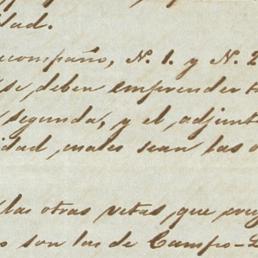 dad.
acompaño, N. 1. y N. 2
se deben emprender
segunda, y el adjunt
idad, cuales sean las
las otras vetas, que
son las de Campo-